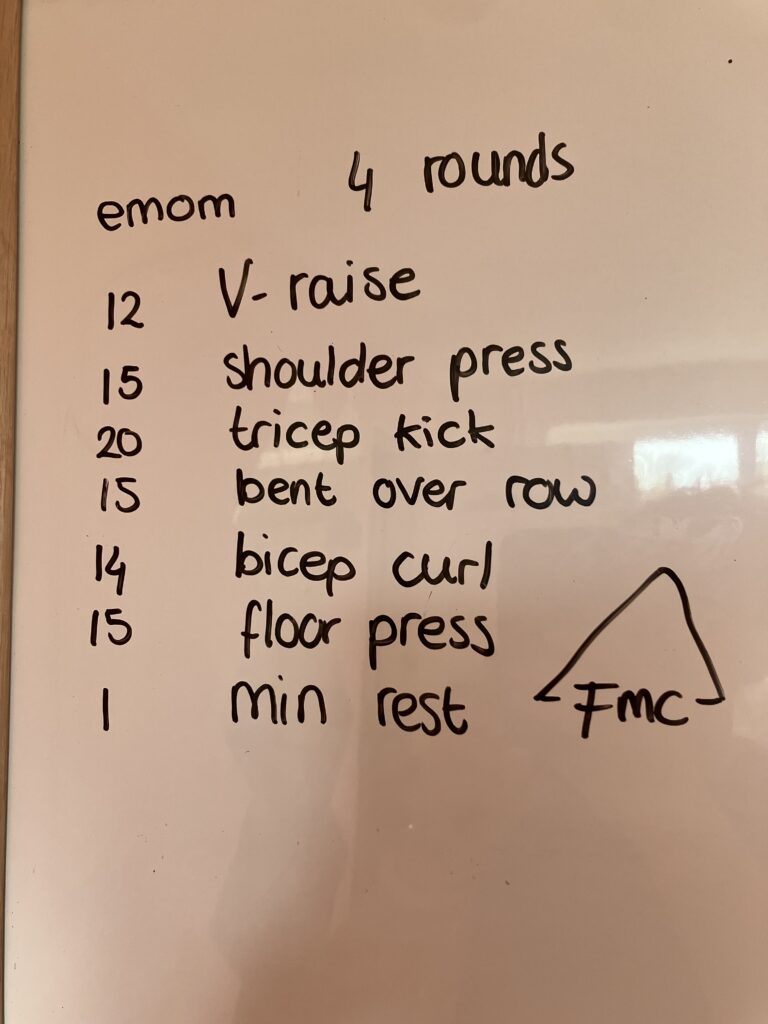 emom 4 rounds
12 V-raise
15 shoulder press
20 tricep kick
15 bent over row
14 bicep curl
15 floor press
1 min rest
Fmc